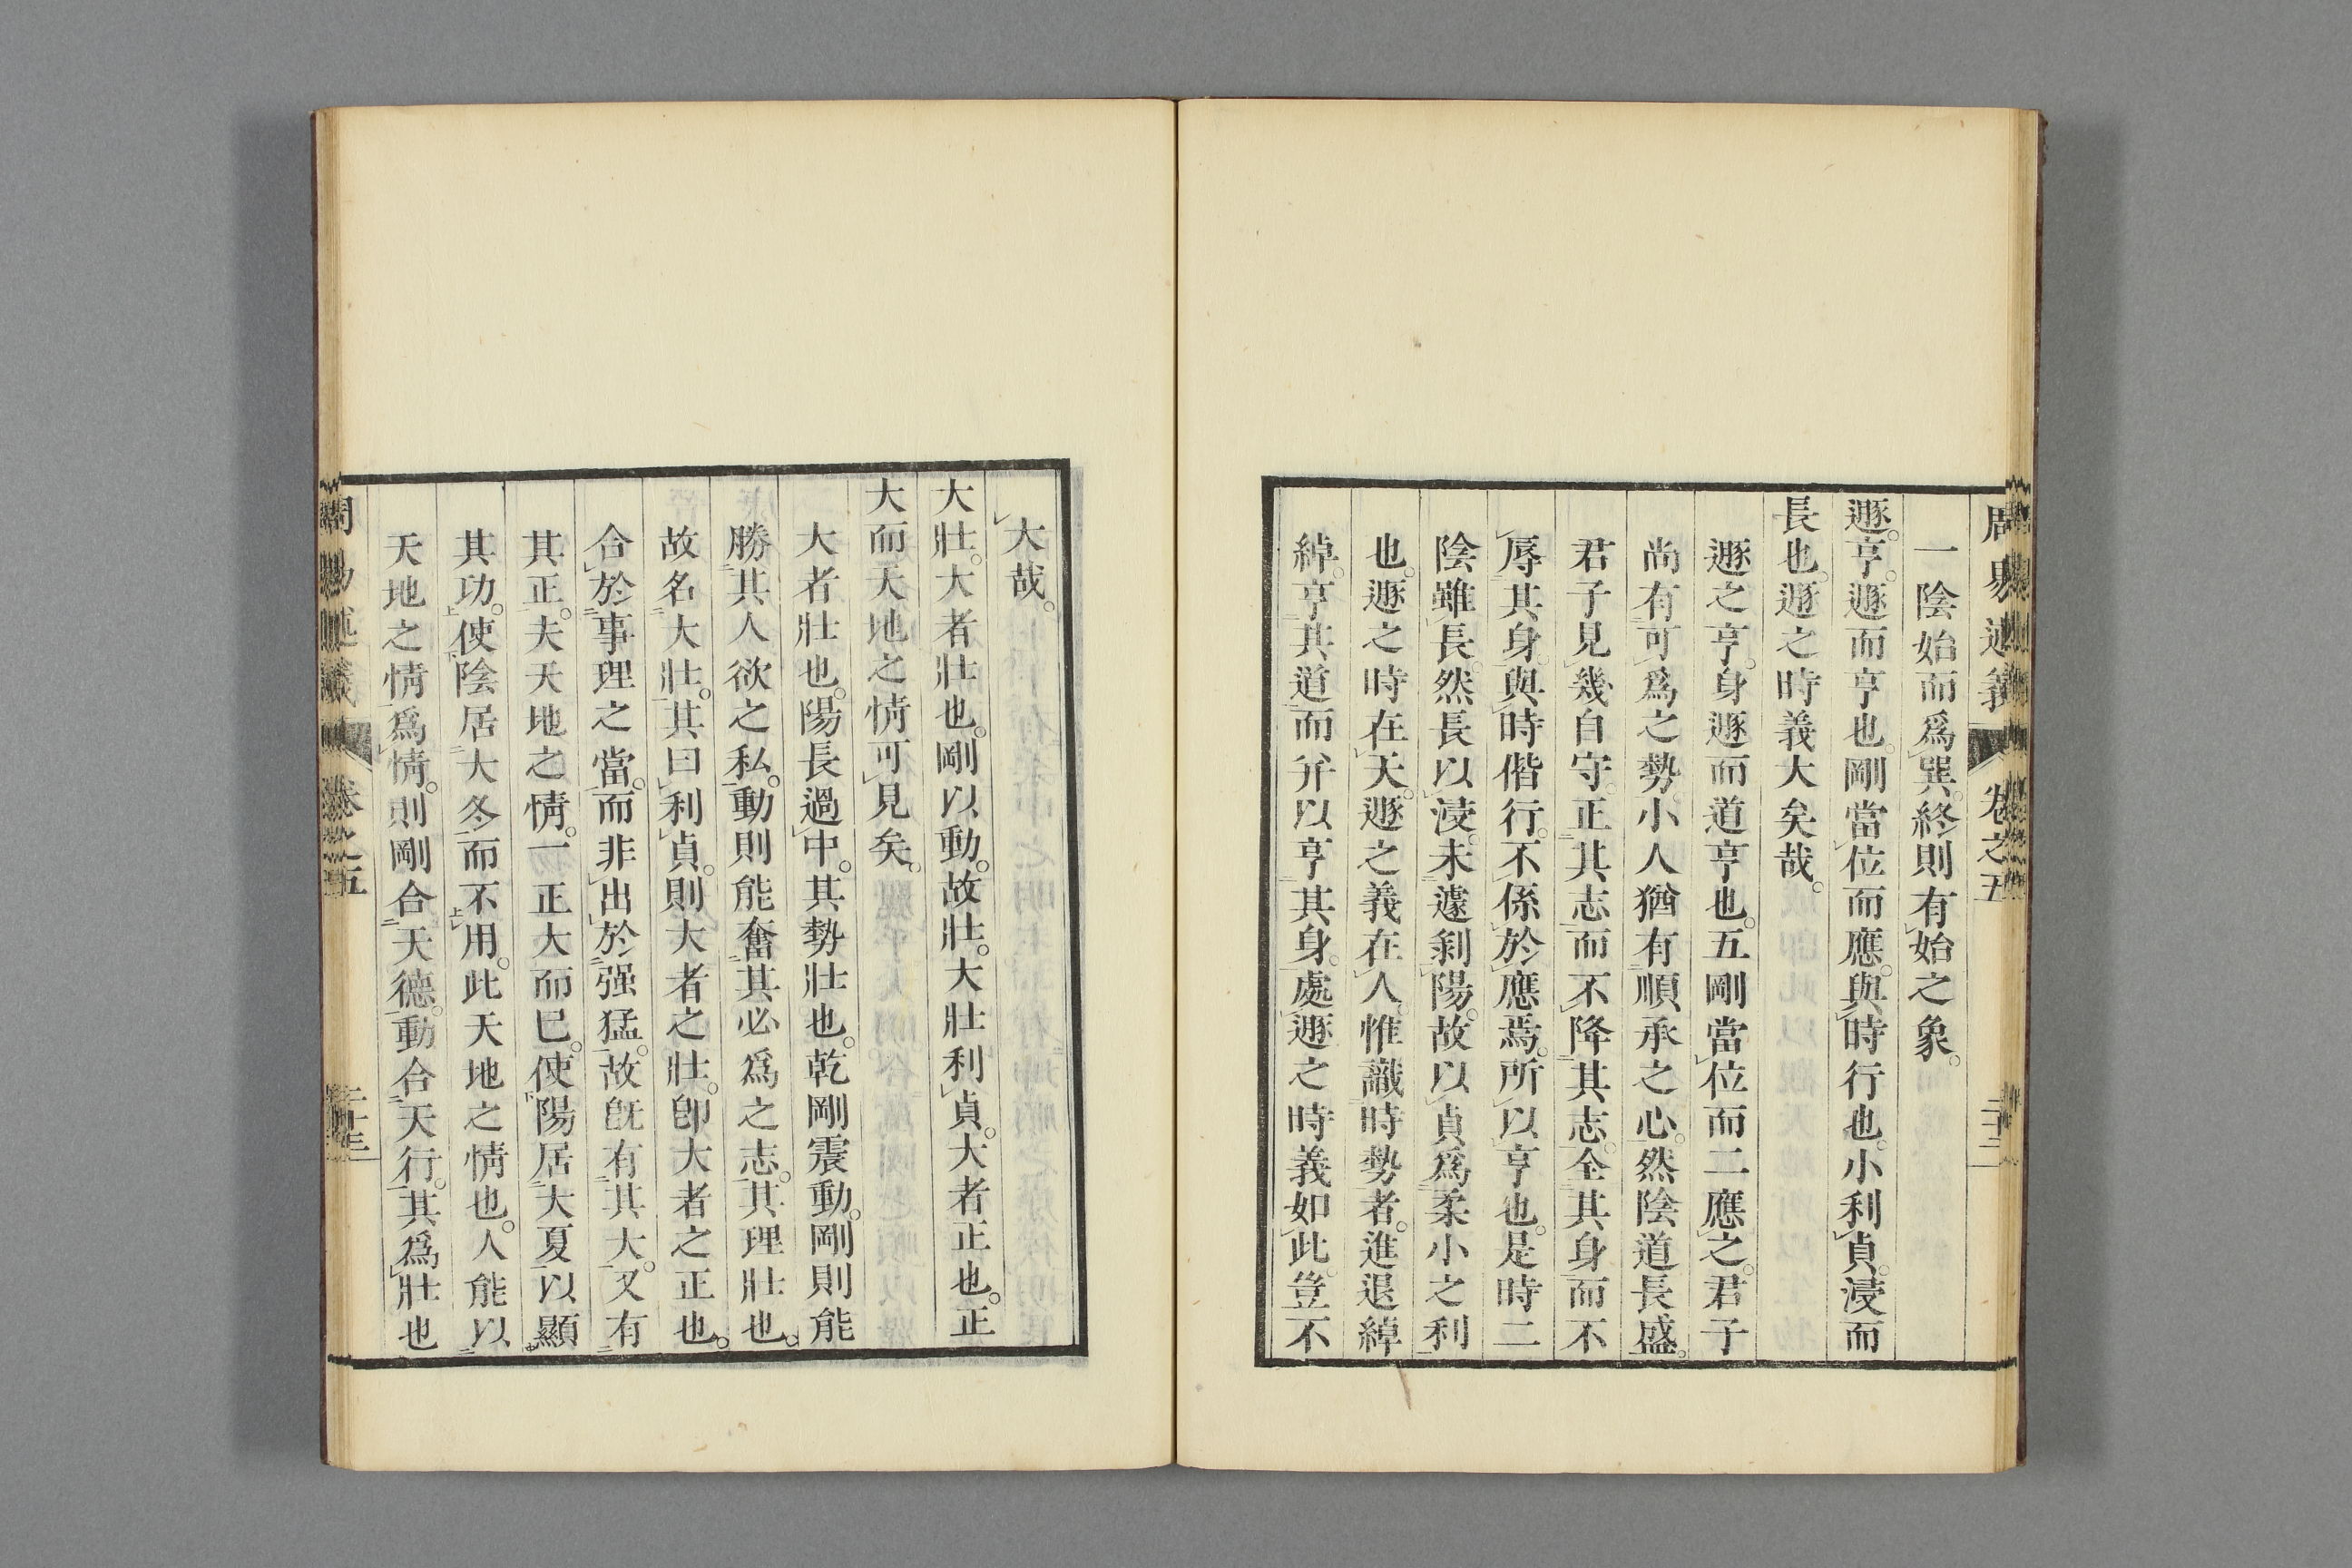 周易述義 卷之五 二十二
一陰始而爲巽。終則有始之象。
遯。亨。遯而亨也。剛當位而應。與時行也。小利貞。浸而
長也。遯之時義大矣哉。
遯之亨。身遯而道亨也。五剛當位而二應之。君子
尚有可爲之勢。小人猶有順承之心。然陰道長盛。
君子見幾自守。正其志而不降其志。全其身而不
辱其身。與時偕行。不係於應焉。所以亨也。是時二
陰雖長。然長以浸。未遽剝陽。故以貞爲柔小之利
也。遯之時在天。遯之義在人。惟識時勢者。進退綽
綽。亨其道而并以亨其身。處遯之時義如此。豈不
大哉。
大壯。大者壯也。剛以動。故壯。大壯利貞。大者正也。正
大而天地之情可見矣。
大者壯也。陽長過中。其勢壯也。乾剛震動。剛則能
勝其人欲之私。動則能奮其必爲之志。其理壯也。
故名大壯。其曰利貞。則大者之壯。卽大者之正也。
合於事理之當。而非出於强猛。故旣有其大。又有
其正。夫天地之情。一正大而巳。使陽居大夏以顯
其功。使陰居大冬而不用。此天地之情也。人能以
天地之情爲情。則剛合天德。動合天行。其爲壯也
周易述義 卷之五 二十三